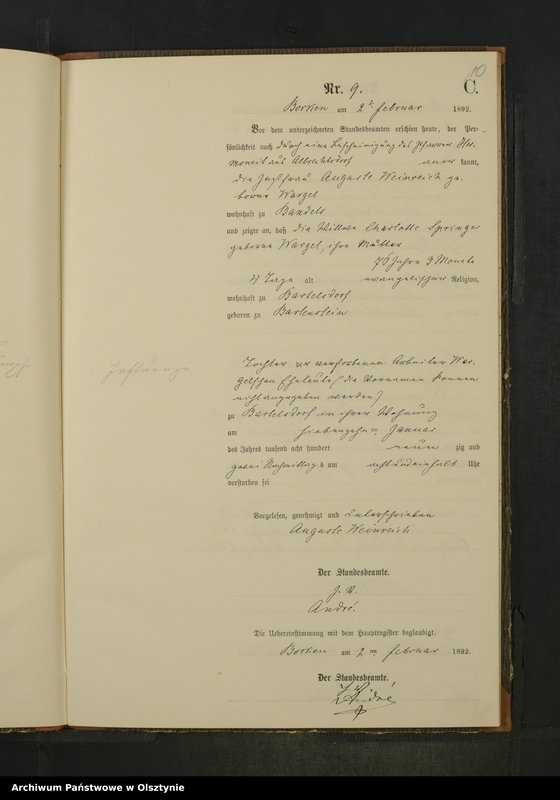 10
Nr. 9.
C.
Borken am 2t Februar 1892.
Vor dem unterzeichneten Standesbeamten erschien heute, der Per-
sönlichkeit nach durch eine Bescheinigung des Pfarrer Her.
aus Albrechtsdorf aner kannt,
die Auguste Weinreich ge-
borne Wargel
wohnhaft zu Bandels
und zeigte an, daß die Wittwe Charlotte Springer
geborne Wargel, ihre Mutter
76 Jahre 3 Monate
21 Tage alt evangelischer Religion,
wohnhaft zu Bartelsdorf
geboren zu Bartenstein
Influenza
Tochter der verstorbenen Arbeiter War-
gelschen Eheleute (die Vornamen konnen
nicht angegeben werden)
zu Bartelsdorf in ihrer Wohnung
am siebenzehnten Januar
des Jahres tausend acht hundert neun zig und
zwei Nachmittags um acht und einhalb Uhr
verstorben sei
Vorgelesen, genehmigt und unterschrieben
Auguste Weinreich
Der Standesbeamte.
J. V.
André.
Die Uebereinstimmung mit dem Hauptregister beglaubigt.
Borken am 2ten Februar 1892.
Der Standesbeamte.
J. V.
André
Archiwum Państwowe w Olsztynie